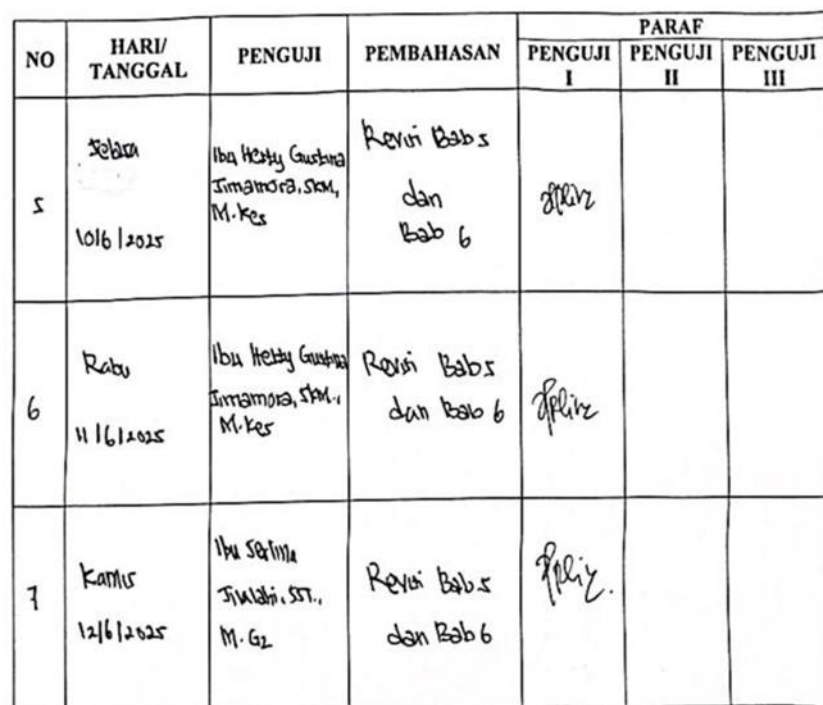 NO HARI/ TANGGAL PENGUJI PEMBAHASAN PARAF
PENGUJI I PENGUJI II PENGUJI III
5
Selasa
10/6/2025
Ibu Hetty Gustina
Simamora, SKM,
M.Kes
Revisi Bab 5
dan
Bab 6
6
Rabu
11/6/2025
Ibu Hetty Gustina
Simamora, SKM.,
M.Kes
Revisi Bab 5
dan Bab 6
7
Kamis
12/6/2025
Ibu
SST.,
M.Gz
Revisi Bab 5
dan Bab 6